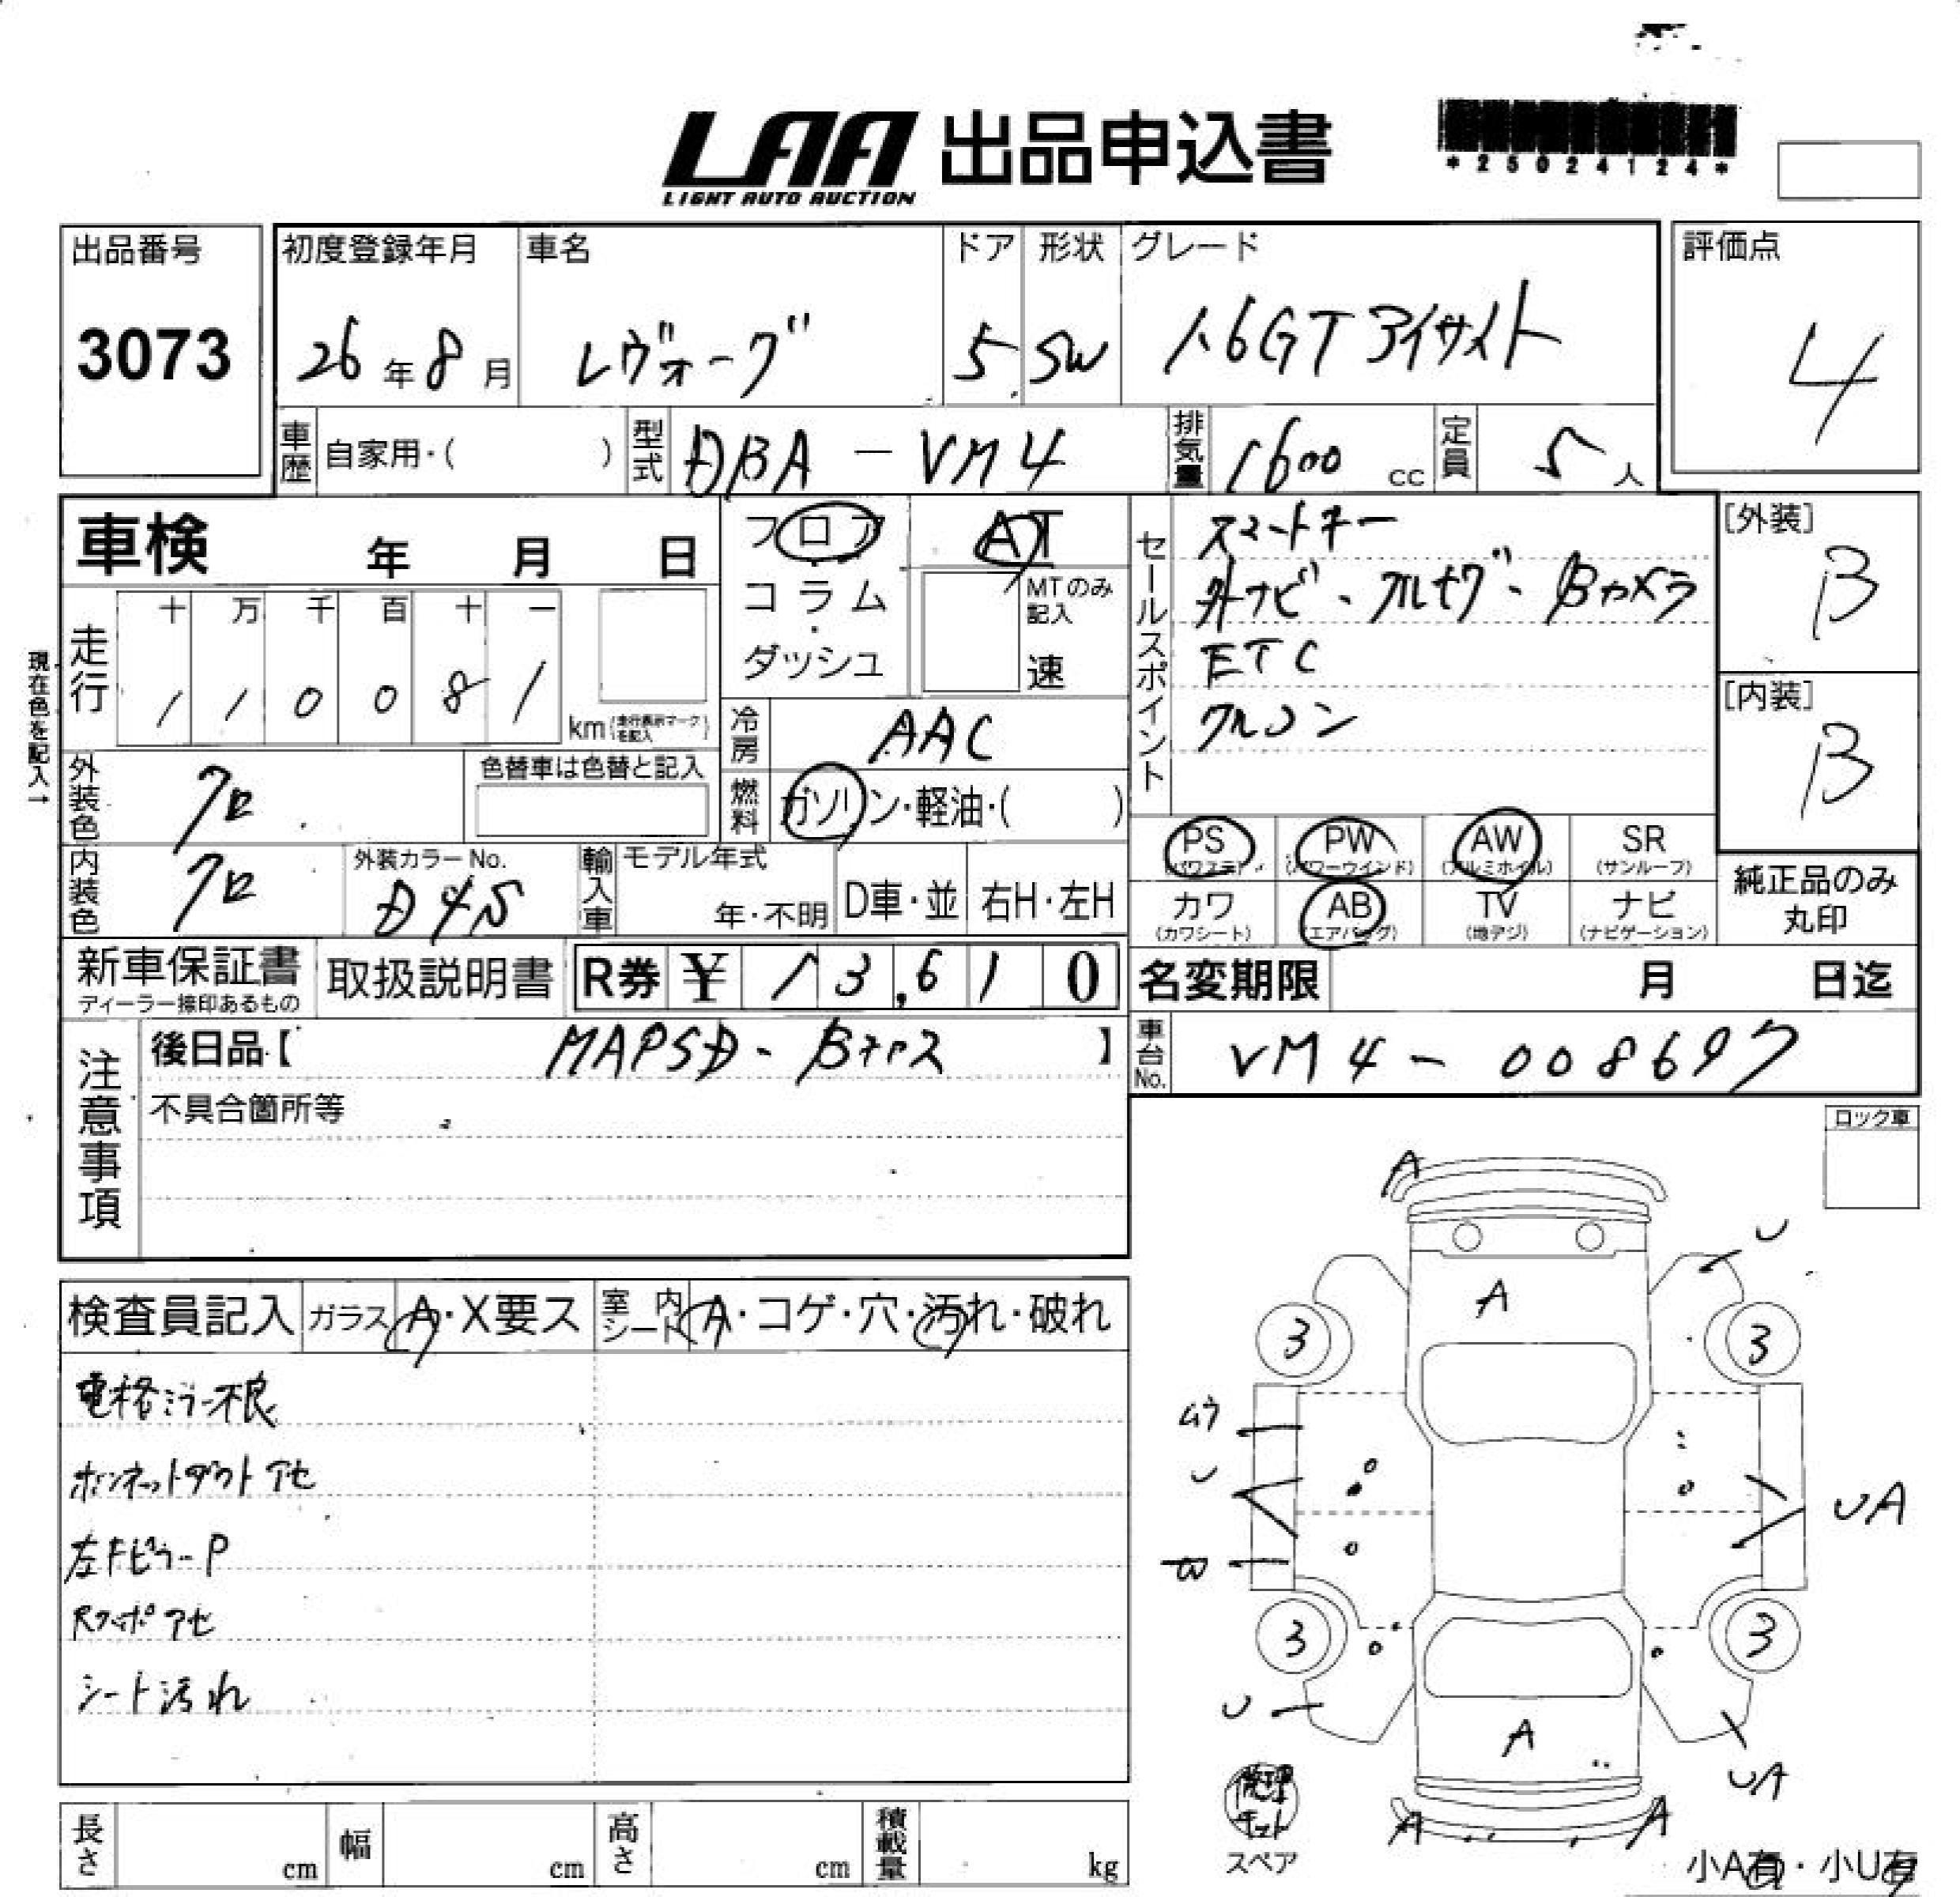 LAA 出品申込書
LIGHT AUTO AUCTION
*25024124*
出品番号
3073
初度登録年月
26年8月
車名
レヴォーグ
ドア
5
形状
SW
グレード
1.6GTアイサイト
評価点
4
車歴 自家用・( )
型式 DBA-VM4
排気量 1600cc
定員 5人
車検 年 月 日
走行 十 万 千 百 十 一
1 1 0 0 8 1 km (走行表示マークを記入)
現在色を記入→
外装色 クロ
色替車は色替と記入
内装色 クロ
外装カラーNo.
D4S
輸入車 モデル年式
年・不明 D車・並 右H・左H
フロア
コラム・
ダッシュ
AT
MTのみ記入
速
冷房 AAC
燃料 ガソリン・軽油・( )
セールスポイント
スマートキー
外ナビ・フルセグ・Bカメラ
ETC
クルコン
[外装]
B
[内装]
B
PS (パワステ) PW (パワーウインド) AW (アルミホイル) SR (サンルーフ)
カワ (カワシート) AB (エアバッグ) TV (地デジ) ナビ (ナビゲーション)
純正品のみ
丸印
新車保証書
ディーラー捺印あるもの
取扱説明書
R券 ¥ 13,610
名変期限 月 日迄
車台No. VM4-008697
注意事項
後日品【 MAPSD・Bナロス 】
不具合箇所等
ロック車
検査員記入 ガラス A・X要ス 室内シート A・コゲ・穴・汚れ・破れ
電格ミラー不良
ボンネットダクトアセ
左Fピラー P
Rスポアセ
シート汚れ
A
U
A
3 3
U
UA
W
3 3
U
A
UA
A A
修理キット
スペア
小A有・小U有
長さ cm 幅 cm 高さ cm 積載量 kg